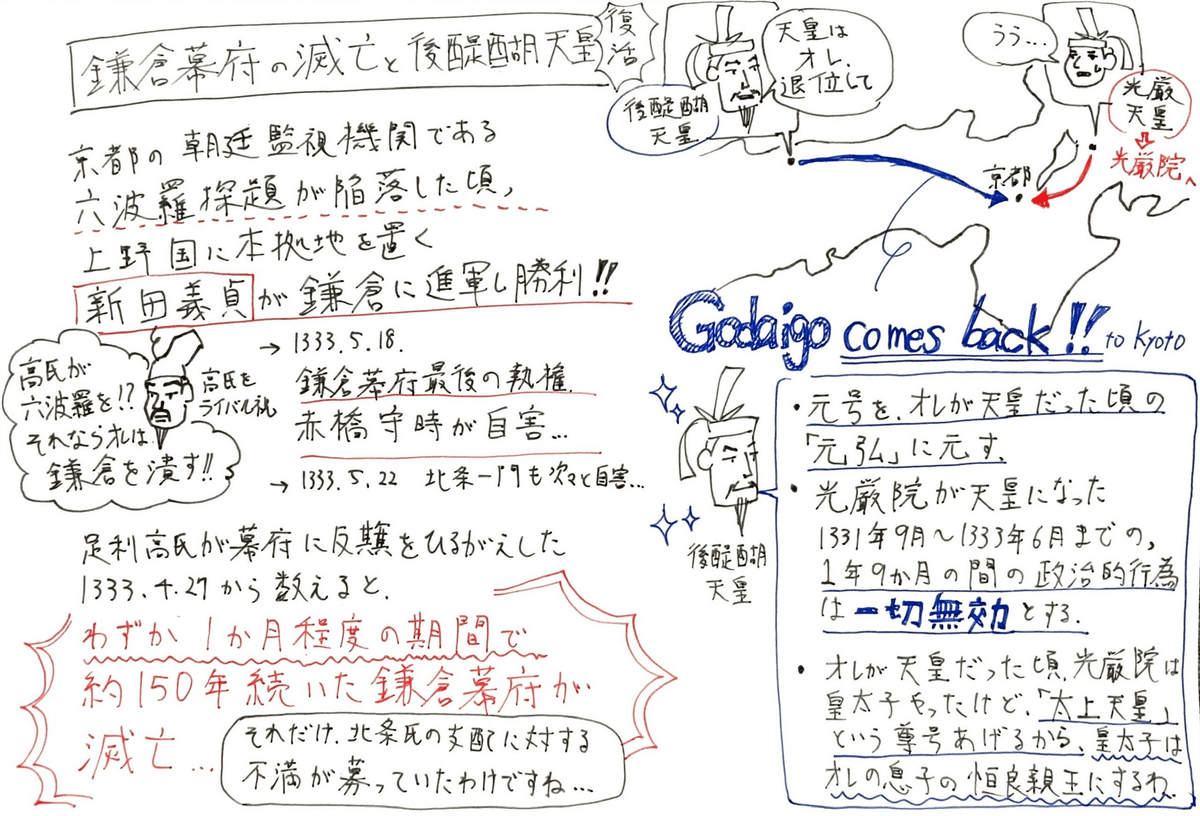 鎌倉幕府の滅亡と後醍醐天皇
復活
京都の朝廷監視機関である
六波羅探題が陥落した頃、
上野国に本拠地を置く
新田義貞が鎌倉に進軍し勝利!!
高氏が
六波羅を!?
それならオレは
鎌倉を潰す!!
高氏を
ライバル視
→ 1333.5.18.
鎌倉幕府最後の執権
赤橋守時が自害…
→ 1333.5.22 北条一門も次々と自害…
足利高氏が幕府に反旗をひるがえした
1333.4.27から数えると、
わずか1か月程度の期間で
約150年続いた鎌倉幕府が
滅亡…
それだけ、北条氏の支配に対する
不満が募っていたわけですね…
天皇は
オレ、
退位して
後醍醐
天皇
うう…
光厳
天皇
⇩
光厳院へ
京都
Godaigo comes back!! to Kyoto
後醍醐
天皇
・元号を、オレが天皇だった頃の
「元弘」に元す、
・光厳院が天皇になった
1331年9月〜1333年6月までの、
1年9か月の間の政治的行為
は一切無効とする.
・オレが天皇だった頃、光厳院は
皇太子やったけど、「太上天皇」
という尊号あげるから、皇太子は
オレの息子の恒良親王にするわ